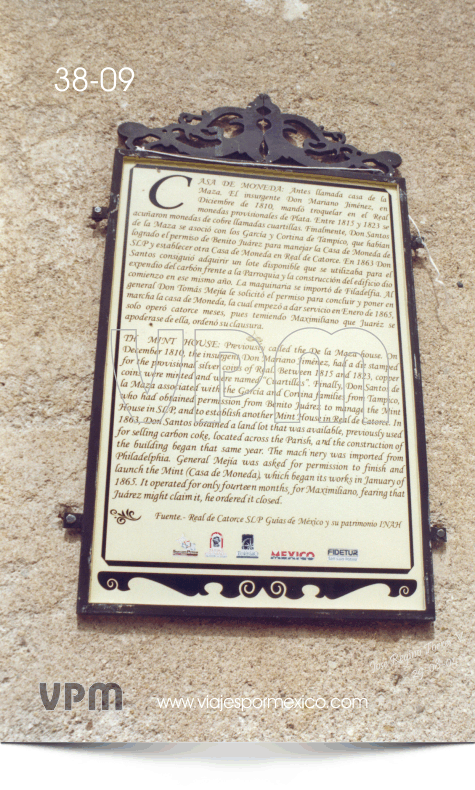 38-09
CASA DE MONEDA: Antes llamada casa de la
Maza. El insurgente Don Mariano Jiménez, en
Diciembre de 1810, mandó troquelar en el Real
monedas provisionales de Plata. Entre 1815 y 1823 se
acuñaron monedas de cobre llamadas cuartillas. Finalmente, Don Santos
de la Maza se asoció con los García y Cortina de Tampico, que habían
logrado el permiso de Benito Juárez para manejar la Casa de Moneda de
SLP y establecer otra Casa de Moneda en Real de Catorce. En 1863 Don
Santos consiguió adquirir un lote disponible que se utilizaba para el
expendio del carbón frente a la Parroquia y la construcción del edificio dio
comienzo en ese mismo año. La maquinaria se importó de Filadelfia. Al
general Don Tomás Mejía le solicitó el permiso para concluir y poner en
marcha la casa de Moneda, la cual empezó a dar servicio en Enero de 1865,
solo operó catorce meses, pues temiendo Maximiliano que Juaréz se
apoderase de ella, ordenó su clausura.
THE MINT HOUSE: Previously called the De la Maza house. On
December 1810, the insurgent Don Mariano Jiménez, had a die stamped
for the provisional silver coins of Real. Between 1815 and 1823, copper
coins were minted and were named "Cuartillas". Finally, Don Santos de
la Maza associated with the García and Cortina families from Tampico,
who had obtained permission from Benito Juárez to manage the Mint
House in SLP, and to establish another Mint House in Real de Catorce. In
1863, Don Santos obtained a land lot that was available, previously used
for selling carbon coke, located across the Parish, and the construction of
the building began that same year. The machinery was imported from
Philadelphia. General Mejia was asked for permission to finish and
launch the Mint (Casa de Moneda), which began its works in January of
1865. It operated for only fourteen months, for Maximiliano, fearing that
Juárez might claim it, he ordered it closed.
Fuente.- Real de Catorce SLP Guías de México y su patrimonio INAH
MEXICO FIDETUR
vpm
VPM www.viajespormexico.com